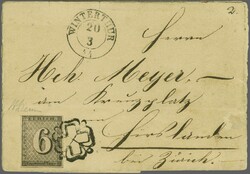 2.
WINTERTHUR
20
3
Herrn
Hch. Meyer.
im Kreuzplatz
in
Hirslanden
bei Zürich.
ZURICH
6